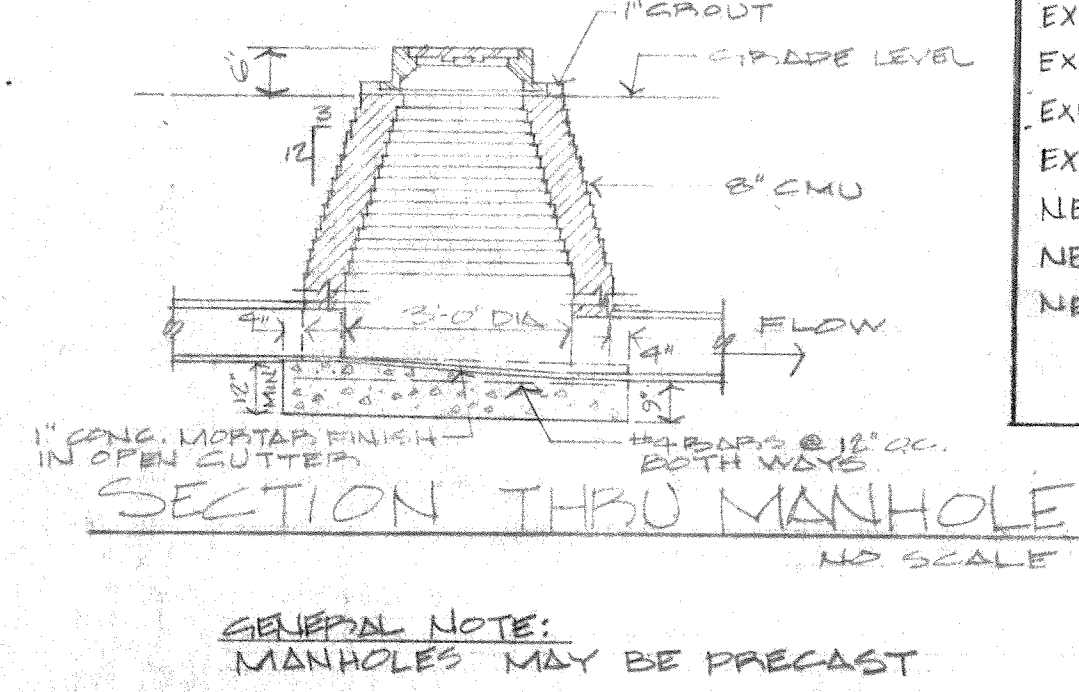 1" GROUT
GRADE LEVEL
6"
3
12
8" CMU
4"
3'-0" DIA
FLOW
4"
12" MIN
9"
1" CONC. MORTAR FINISH
IN OPEN GUTTER
#4 BARS @ 12" O.C.
BOTH WAYS
SECTION THRU MANHOLE
NO SCALE
GENERAL NOTE:
MANHOLES MAY BE PRECAST
EX
EX
EXI
EX
NE
NE
NE